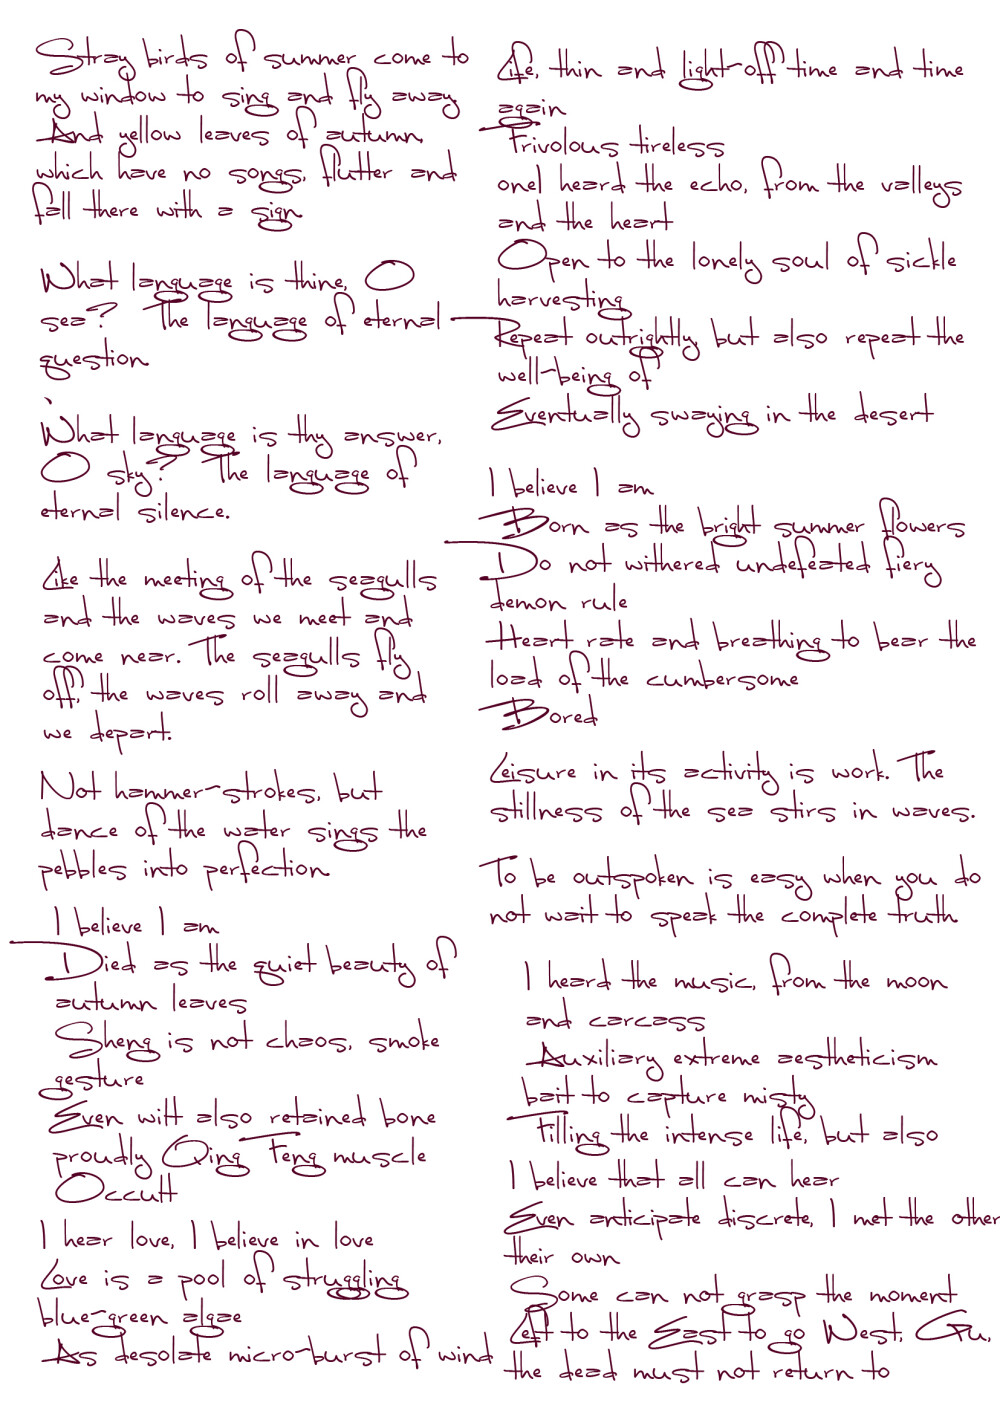 Stray birds of summer come to
my window to sing and fly away.
And yellow leaves of autumn,
which have no songs, flutter and
fall there with a sign
What language is thine, O
sea? The language of eternal
question.
What language is thy answer,
O sky? The language of
eternal silence.
Like the meeting of the seagulls
and the waves we meet and
come near. The seagulls fly
off, the waves roll away and
we depart.
Not hammer-strokes, but
dance of the water sings the
pebbles into perfection.
I believe I am
Died as the quiet beauty of
autumn leaves
Sheng is not chaos, smoke
gesture
Even wilt also retained bone
proudly Qing Feng muscle
Occult
I hear love, I believe in love
Love is a pool of struggling
blue-green algae
As desolate micro-burst of wind
Life, thin and light-off time and time
again
Frivolous tireless
one I heard the echo, from the valleys
and the heart
Open to the lonely soul of sickle
harvesting
Repeat outrightly, but also repeat the
well-being of
Eventually swaying in the desert
I believe I am
Born as the bright summer flowers
Do not withered undefeated fiery
demon rule
Heart rate and breathing to bear the
load of the cumbersome
Bored
Leisure in its activity is work. The
stillness of the sea stirs in waves.
To be outspoken is easy when you do
not wait to speak the complete truth
I heard the music, from the moon
and carcass
Auxiliary extreme aestheticism
bait to capture misty
Filling the intense life, but also
I believe that all can hear
Even anticipate discrete, I met the other
their own
Some can not grasp the moment
Left to the East to go West, Gu,
the dead must not return to